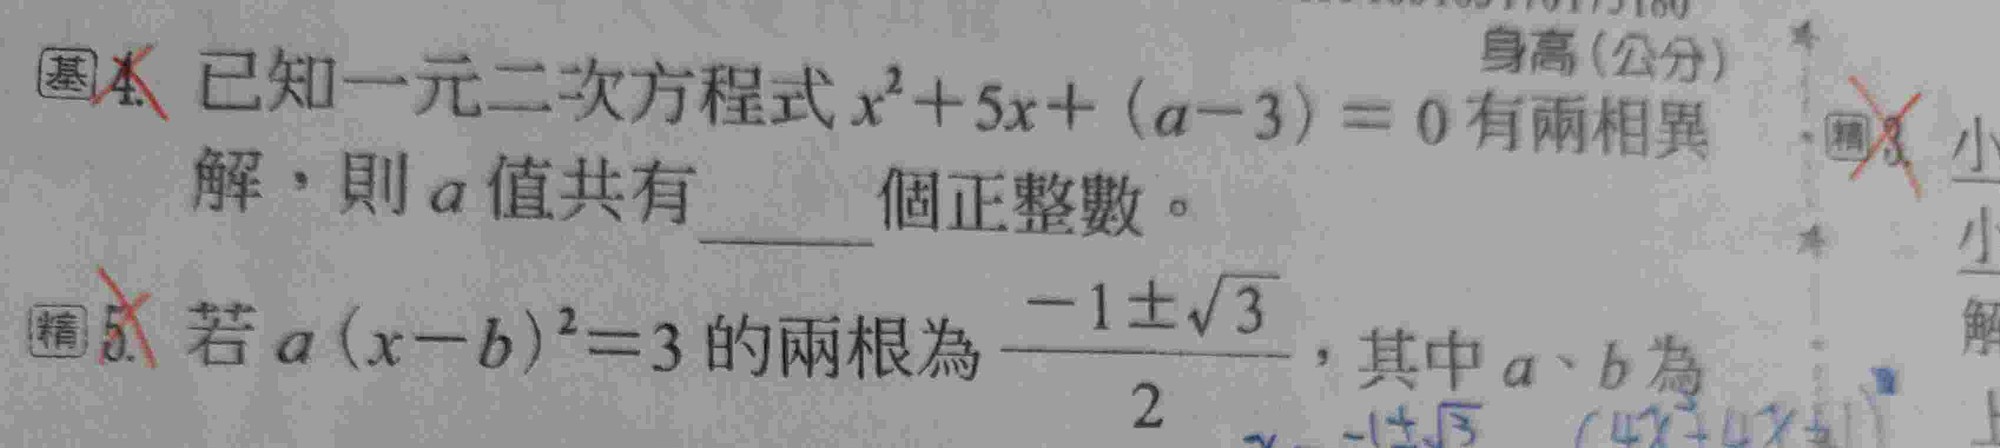 身高(公分)
基 4. 已知一元二次方程式 x²+5x+(a-3)=0 有兩相異
解，則 a 值共有____個正整數。
精 5. 若 a(x-b)²=3 的兩根為 \frac{-1±√3}{2}，其中 a、b 為
-1±√3
精 3. 小
小
解